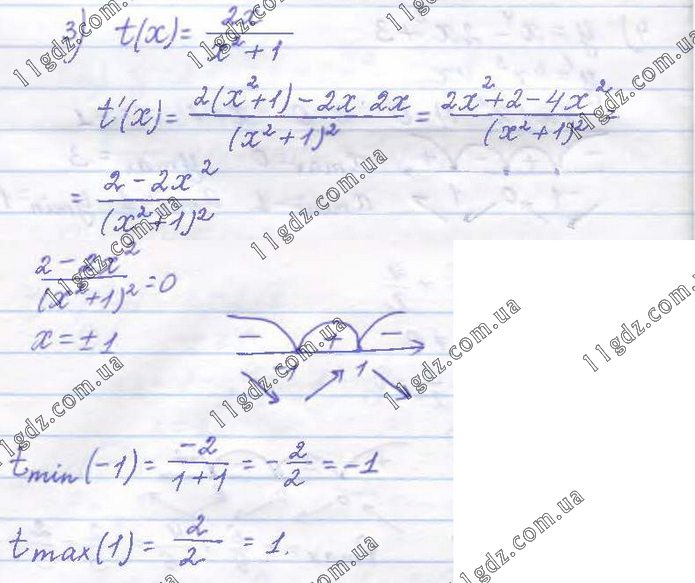 3) t(x) = 2x / (x² + 1)
t'(x) = (2(x² + 1) − 2x · 2x) / (x² + 1)² = (2x² + 2 − 4x²) / (x² + 1)²
= (2 − 2x²) / (x² + 1)²
(2 − 2x²) / (x² + 1)² = 0
x = ±1
− + −
−1 1
t min (−1) = −2 / (1 + 1) = −2/2 = −1
t max (1) = 2/2 = 1.
11gdz.com.ua
11gdz.com.ua
11gdz.com.ua
11gdz.com.ua
11gdz.com.ua
11gdz.com.ua
11gdz.com.ua
11gdz.com.ua
11gdz.com.ua
11gdz.com.ua
11gdz.com.ua
11gdz.com.ua